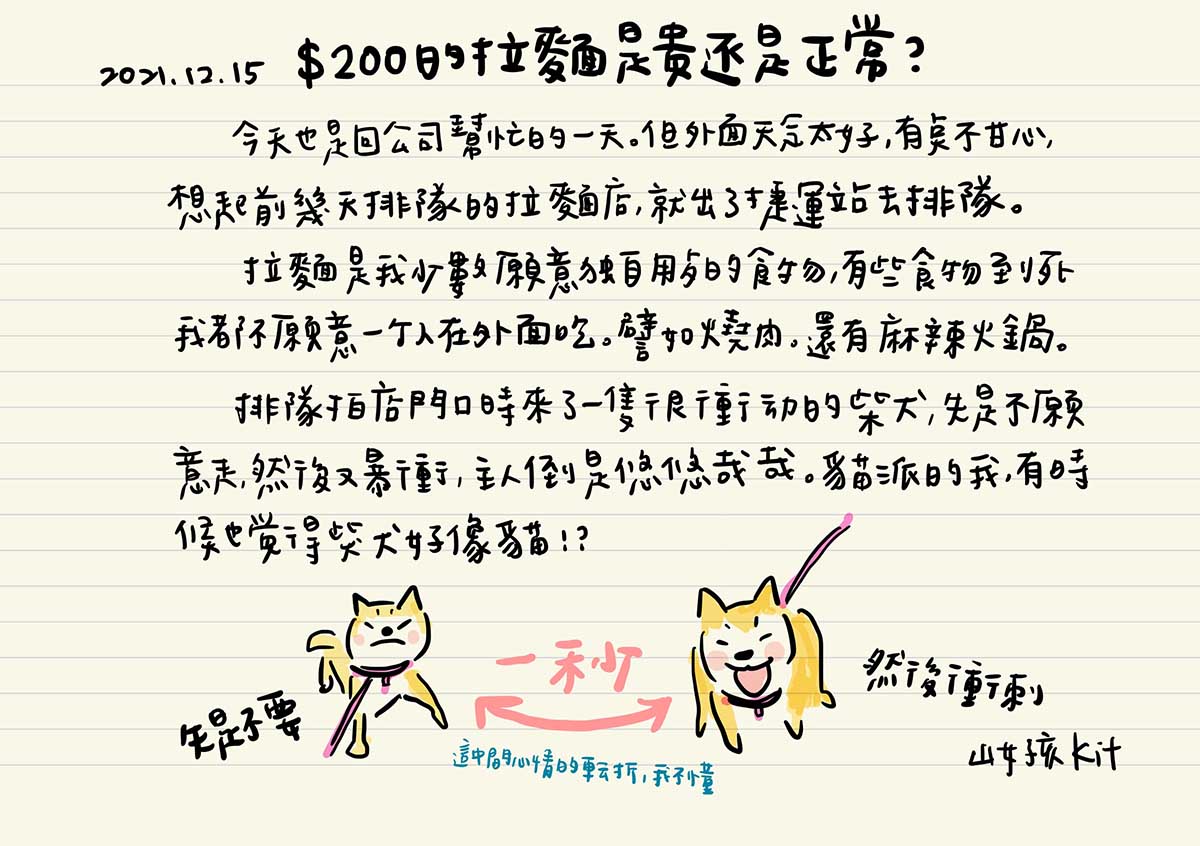 2021.12.15 $200的拉麵是貴還是正常?
今天也是回公司幫忙的一天。但外面天氣太好,有點不甘心,
想起前幾天排隊的拉麵店,就出了捷運站去排隊。
拉麵是我少數願意獨自用餐的食物,有些食物到死
我都不願意一个人在外面吃。譬如燒肉。還有麻辣火鍋。
排隊拍店門口時來了一隻很衝动的柴犬,先是不願
意走,然後又暴衝,主人倒是悠悠哉哉。貓派的我,有時
候也覚得柴犬好像貓!?
一秒
先是不要
然後衝刺
這中間心情的転折,我不懂
山女孩Kit